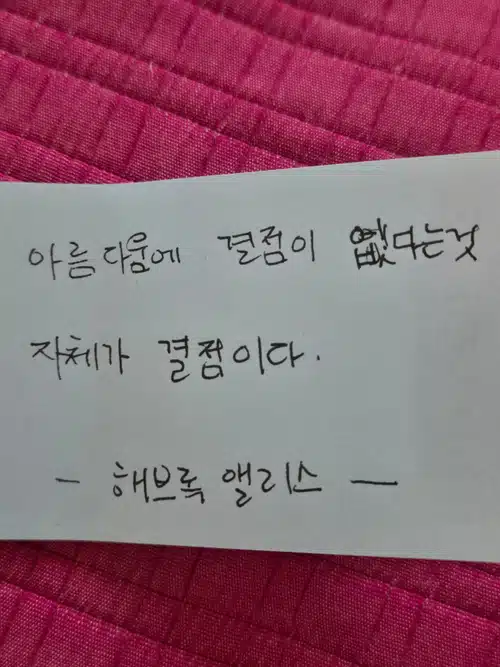 아름다움에 결점이 없다는것
자체가 결점이다.
- 해브록 앨리스 -